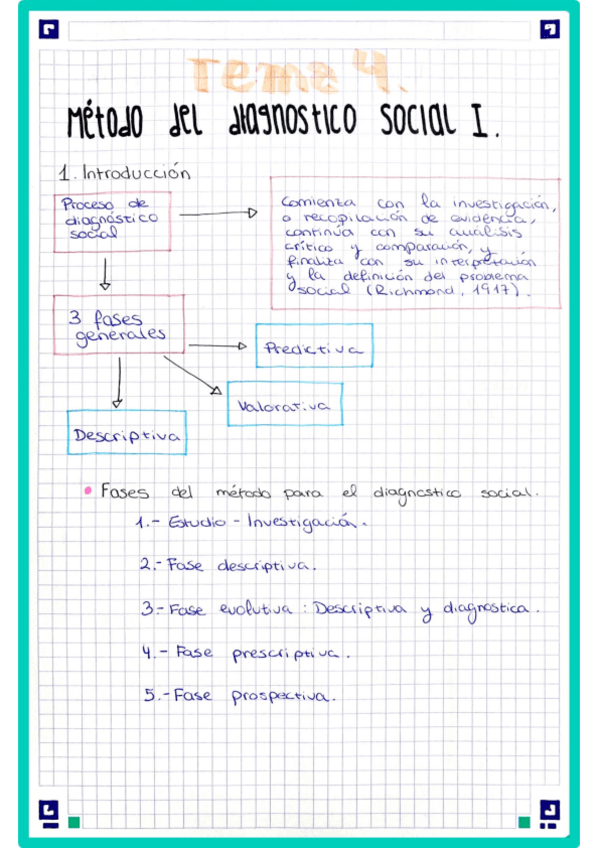 Tema 4.
Método del diagnostico social I.
1. Introducción
Proceso de
diagnóstico
social
Comienza con la investigación,
o recopilación de evidencia,
continúa con su análisis
crítico y comparación, y
finaliza con su interpretación
y la definición del problema
social (Richmond, 1917).
3 fases
generales
Predictiva
Valorativa
Descriptiva
• Fases del método para el diagnostico social.
1.- Estudio - Investigación.
2.- Fase descriptiva.
3.- Fase evolutiva : Descriptiva y diagnostica.
4.- Fase prescriptiva.
5.- Fase prospectiva.